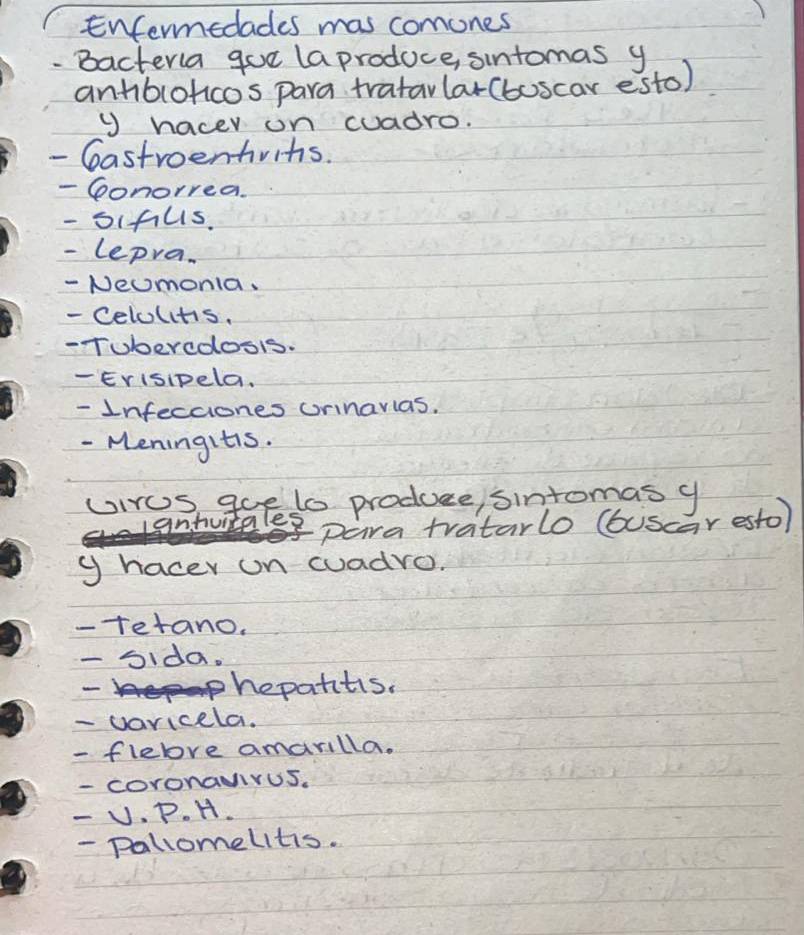 Enfermedades mas comunes
- Bacteria que la produce, sintomas y
antibioticos para tratarla (buscar esto)
y hacer un cuadro.
- Gastroentiritis.
- Gonorrea.
- Sifilis.
- Lepra.
- Neumonia.
- Celulitis.
- Tuberculosis.
- Erisipela.
- Infecciones urinarias.
- Meningitis.
virus que lo produce, sintomas y
antivirales para tratarlo (buscar esto)
y hacer un cuadro.
- Tetano.
- Sida.
- hepatitis.
- varicela.
- fiebre amarilla.
- coronavirus.
- V.P.H.
- Paliomelitis.